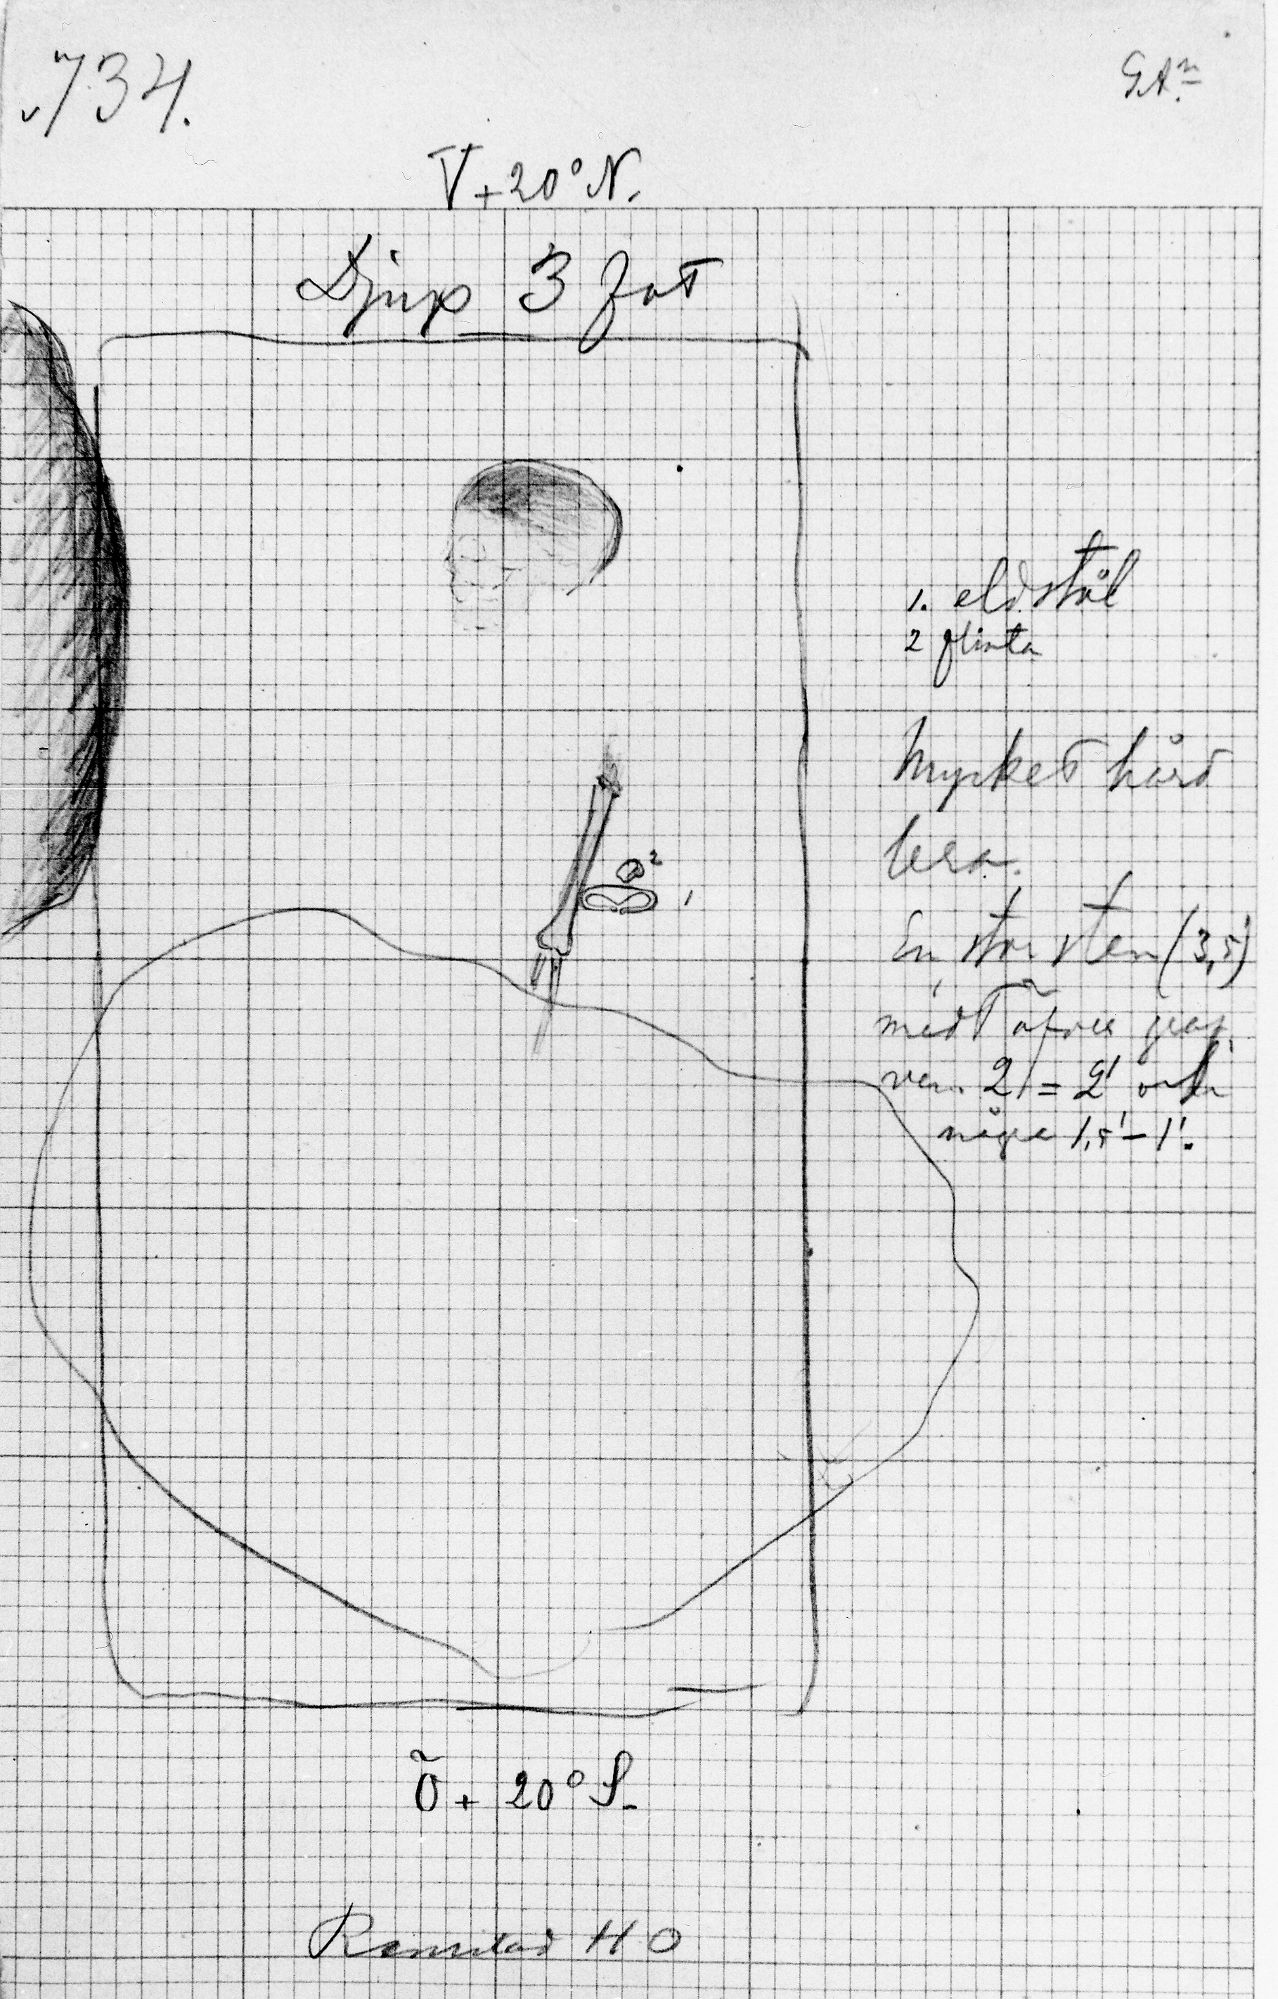 734.
G.An
V+20°N.
Djup 3 fot
1. eldstål
2 flinta
Mycket hård
lera.
2
1
En stor sten (3,5')
midt öfver graf
ven. 2 = 2' och
några 1,5' – 1'.
Ö + 20° S.
H O